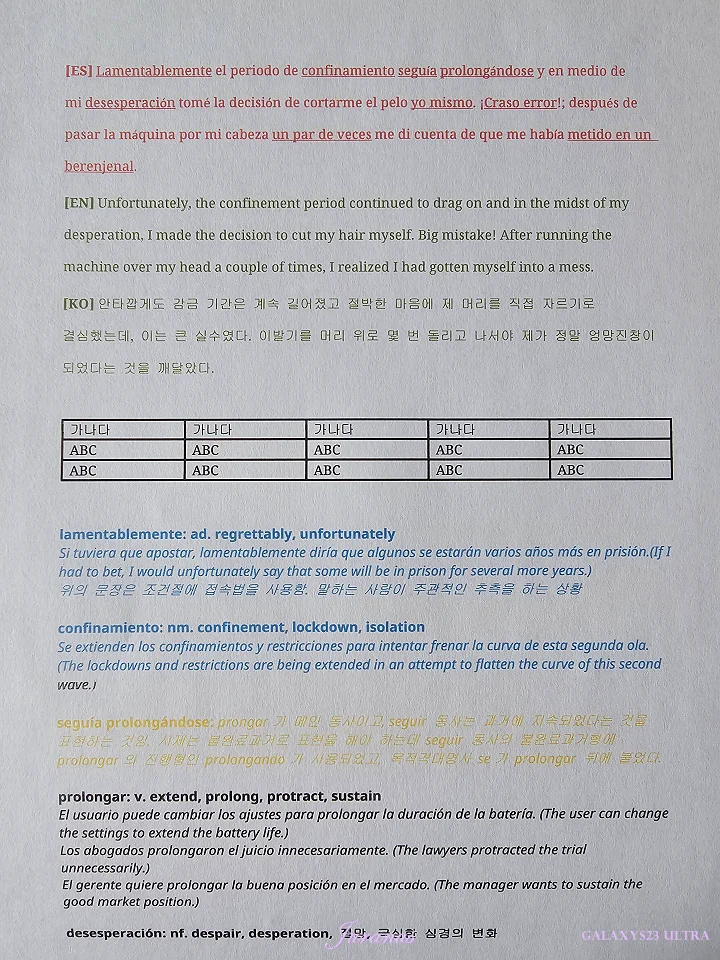 [ES] Lamentablemente el periodo de confinamiento seguía prolongándose y en medio de
mi desesperación tomé la decisión de cortarme el pelo yo mismo. ¡Craso error!; después de
pasar la máquina por mi cabeza un par de veces me di cuenta de que me había metido en un
berenjenal.
[EN] Unfortunately, the confinement period continued to drag on and in the midst of my
desperation, I made the decision to cut my hair myself. Big mistake! After running the
machine over my head a couple of times, I realized I had gotten myself into a mess.
[KO] 안타깝게도 감금 기간은 계속 길어졌고 절박한 마음에 제 머리를 직접 자르기로
결심했는데, 이는 큰 실수였다. 이발기를 머리 위로 몇 번 돌리고 나서야 제가 정말 엉망진창이
되었다는 것을 깨달았다.
가나다 가나다 가나다 가나다 가나다
ABC ABC ABC ABC ABC
ABC ABC ABC ABC ABC
lamentablemente: ad. regrettably, unfortunately
Si tuviera que apostar, lamentablemente diría que algunos se estarán varios años más en prisión.(If I
had to bet, I would unfortunately say that some will be in prison for several more years.)
위의 문장은 조건절에 접속법을 사용함. 말하는 사람이 주관적인 추측을 하는 상황
confinamiento: nm. confinement, lockdown, isolation
Se extienden los confinamientos y restricciones para intentar frenar la curva de esta segunda ola.
(The lockdowns and restrictions are being extended in an attempt to flatten the curve of this second
wave.)
seguía prolongándose: prongar 가 메인 동사이고, seguir 동사는 과거에 지속되었다는 것을
표현하는 것임. 시제는 불완료과거로 표현을 해야 하는데 seguir 동사의 불완료과거형에
prolongar 의 진행형인 prolongando 가 사용되었고, 목적격대명사 se 가 prolongar 뒤에 붙었다.
prolongar: v. extend, prolong, protract, sustain
El usuario puede cambiar los ajustes para prolongar la duración de la batería. (The user can change
the settings to extend the battery life.)
Los abogados prolongaron el juicio innecesariamente. (The lawyers protracted the trial
unnecessarily.)
El gerente quiere prolongar la buena posición en el mercado. (The manager wants to sustain the
good market position.)
desesperación: nf. despair, desperation, 절망, 심경의 변화
GALAXYS23 ULTRA